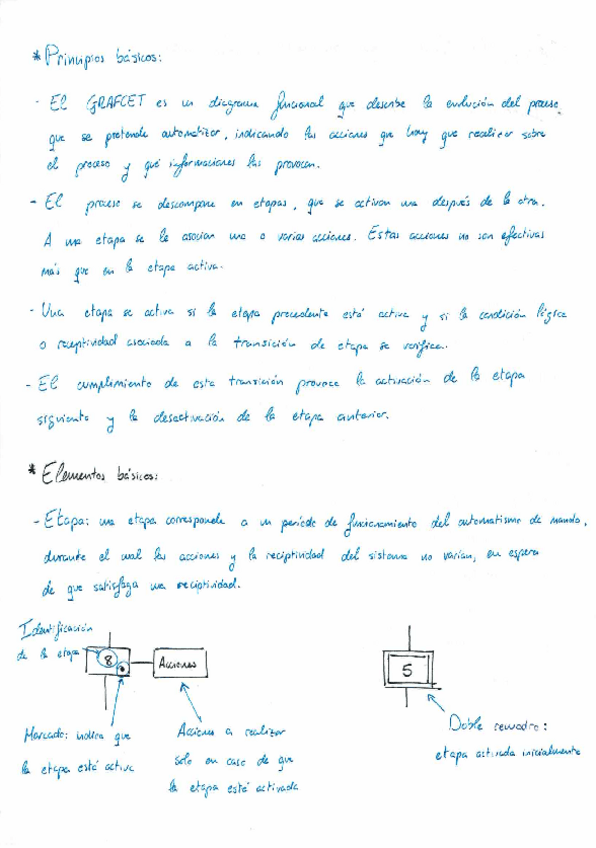 * Principios básicos:
- El GRAFCET es un diagrama funcional que describe la evolución del proceso
que se pretende automatizar, indicando las acciones que hay que realizar sobre
el proceso y qué informaciones las provocan.
- El proceso se descompone en etapas, que se activan una después de la otra.
A una etapa se le asocian una o varias acciones. Estas acciones no son efectivas
más que en la etapa activa.
- Una etapa se activa si la etapa precedente está activa y si la condición lógica
o receptividad asociada a la transición de etapa se verifica.
- El cumplimiento de esta transición provoca la activación de la etapa
siguiente y la desactivación de la etapa anterior.
* Elementos básicos:
- Etapa: una etapa corresponde a un período de funcionamiento del automatismo de mando,
durante el cual las acciones y la reciptividad del sistema no varían, en espera
de que satisfaga una reciptividad.
Identificación
de la etapa
8
Acciones
5
Marcado: indica que
la etapa está activa
Acciones a realizar
solo en caso de que
la etapa esté activada
Doble recuadro:
etapa activada inicialmente